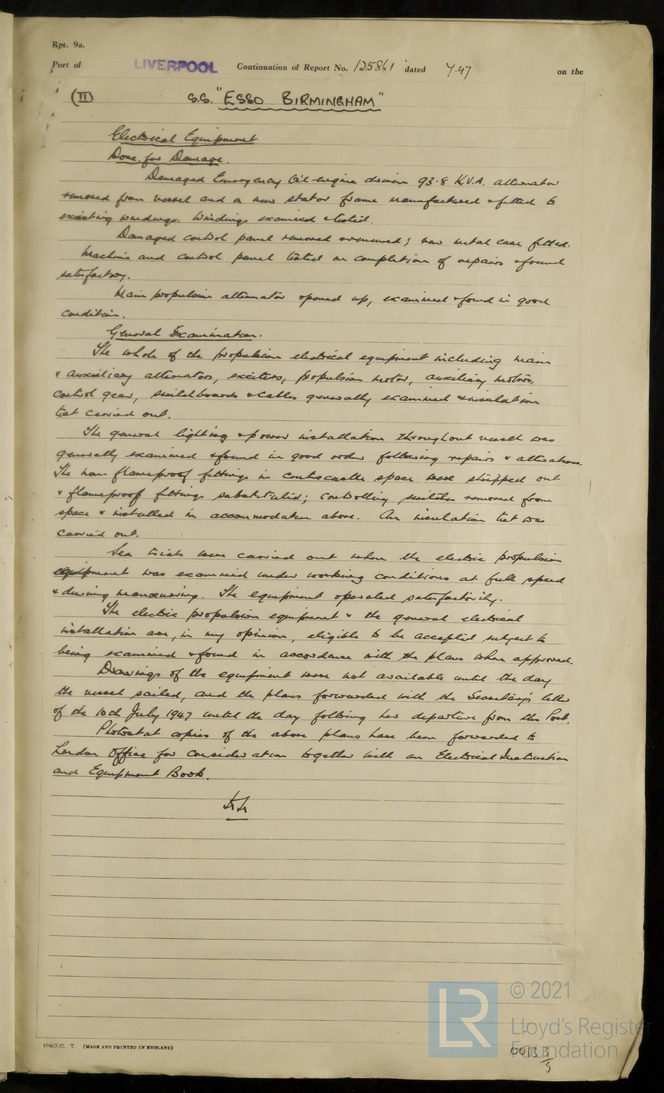 Rpt. 9a.
Port of LIVERPOOL Continuation of Report No. 125861 dated 7.47 on the
(II) S.S. "ESSO BIRMINGHAM"
Electrical Equipment
Done for Damage.
Damaged Emergency Oil-engine driven 93.8 K.V.A. alternator
removed from vessel and a new stator frame manufactured & fitted to
existing windings. Windings examined & tested.
Damaged control panel removed & renewed; new metal case fitted.
Machine and control panel tested on completion of repairs & found
satisfactory.
Main propulsion alternator opened up, examined & found in good
condition.
General Examination.
The whole of the propulsion electrical equipment including main
& auxiliary alternators, exciters, propulsion motor, auxiliary motors,
control gear, switchboards & cables generally examined & insulation
test carried out.
The general lighting & power installation throughout vessel was
generally examined & found in good order following repairs & alterations.
The non flameproof fittings in centrecastle space were stripped out
& flameproof fittings substituted; controlling switches removed from
space & installed in accommodation above. An insulation test was
carried out.
Sea trials were carried out when the electric propulsion
equipment was examined under working conditions at full speed
& during manœuvring. The equipment operated satisfactorily.
The electric propulsion equipment & the general electrical
installation are, in my opinion, eligible to be accepted subject to
being examined & found in accordance with the plans when approved.
Drawings of the equipment were not available until the day
the vessel sailed, and the plans forwarded with the Secretary's letter
of the 10th July 1947 until the day following her departure from this Port.
Photostat copies of the above plans have been forwarded to
London Office for consideration together with an Electrical Instruction
and Equipment Book.
T. (MADE AND PRINTED IN ENGLAND)
LR © 2021
Lloyd's Register
Foundation